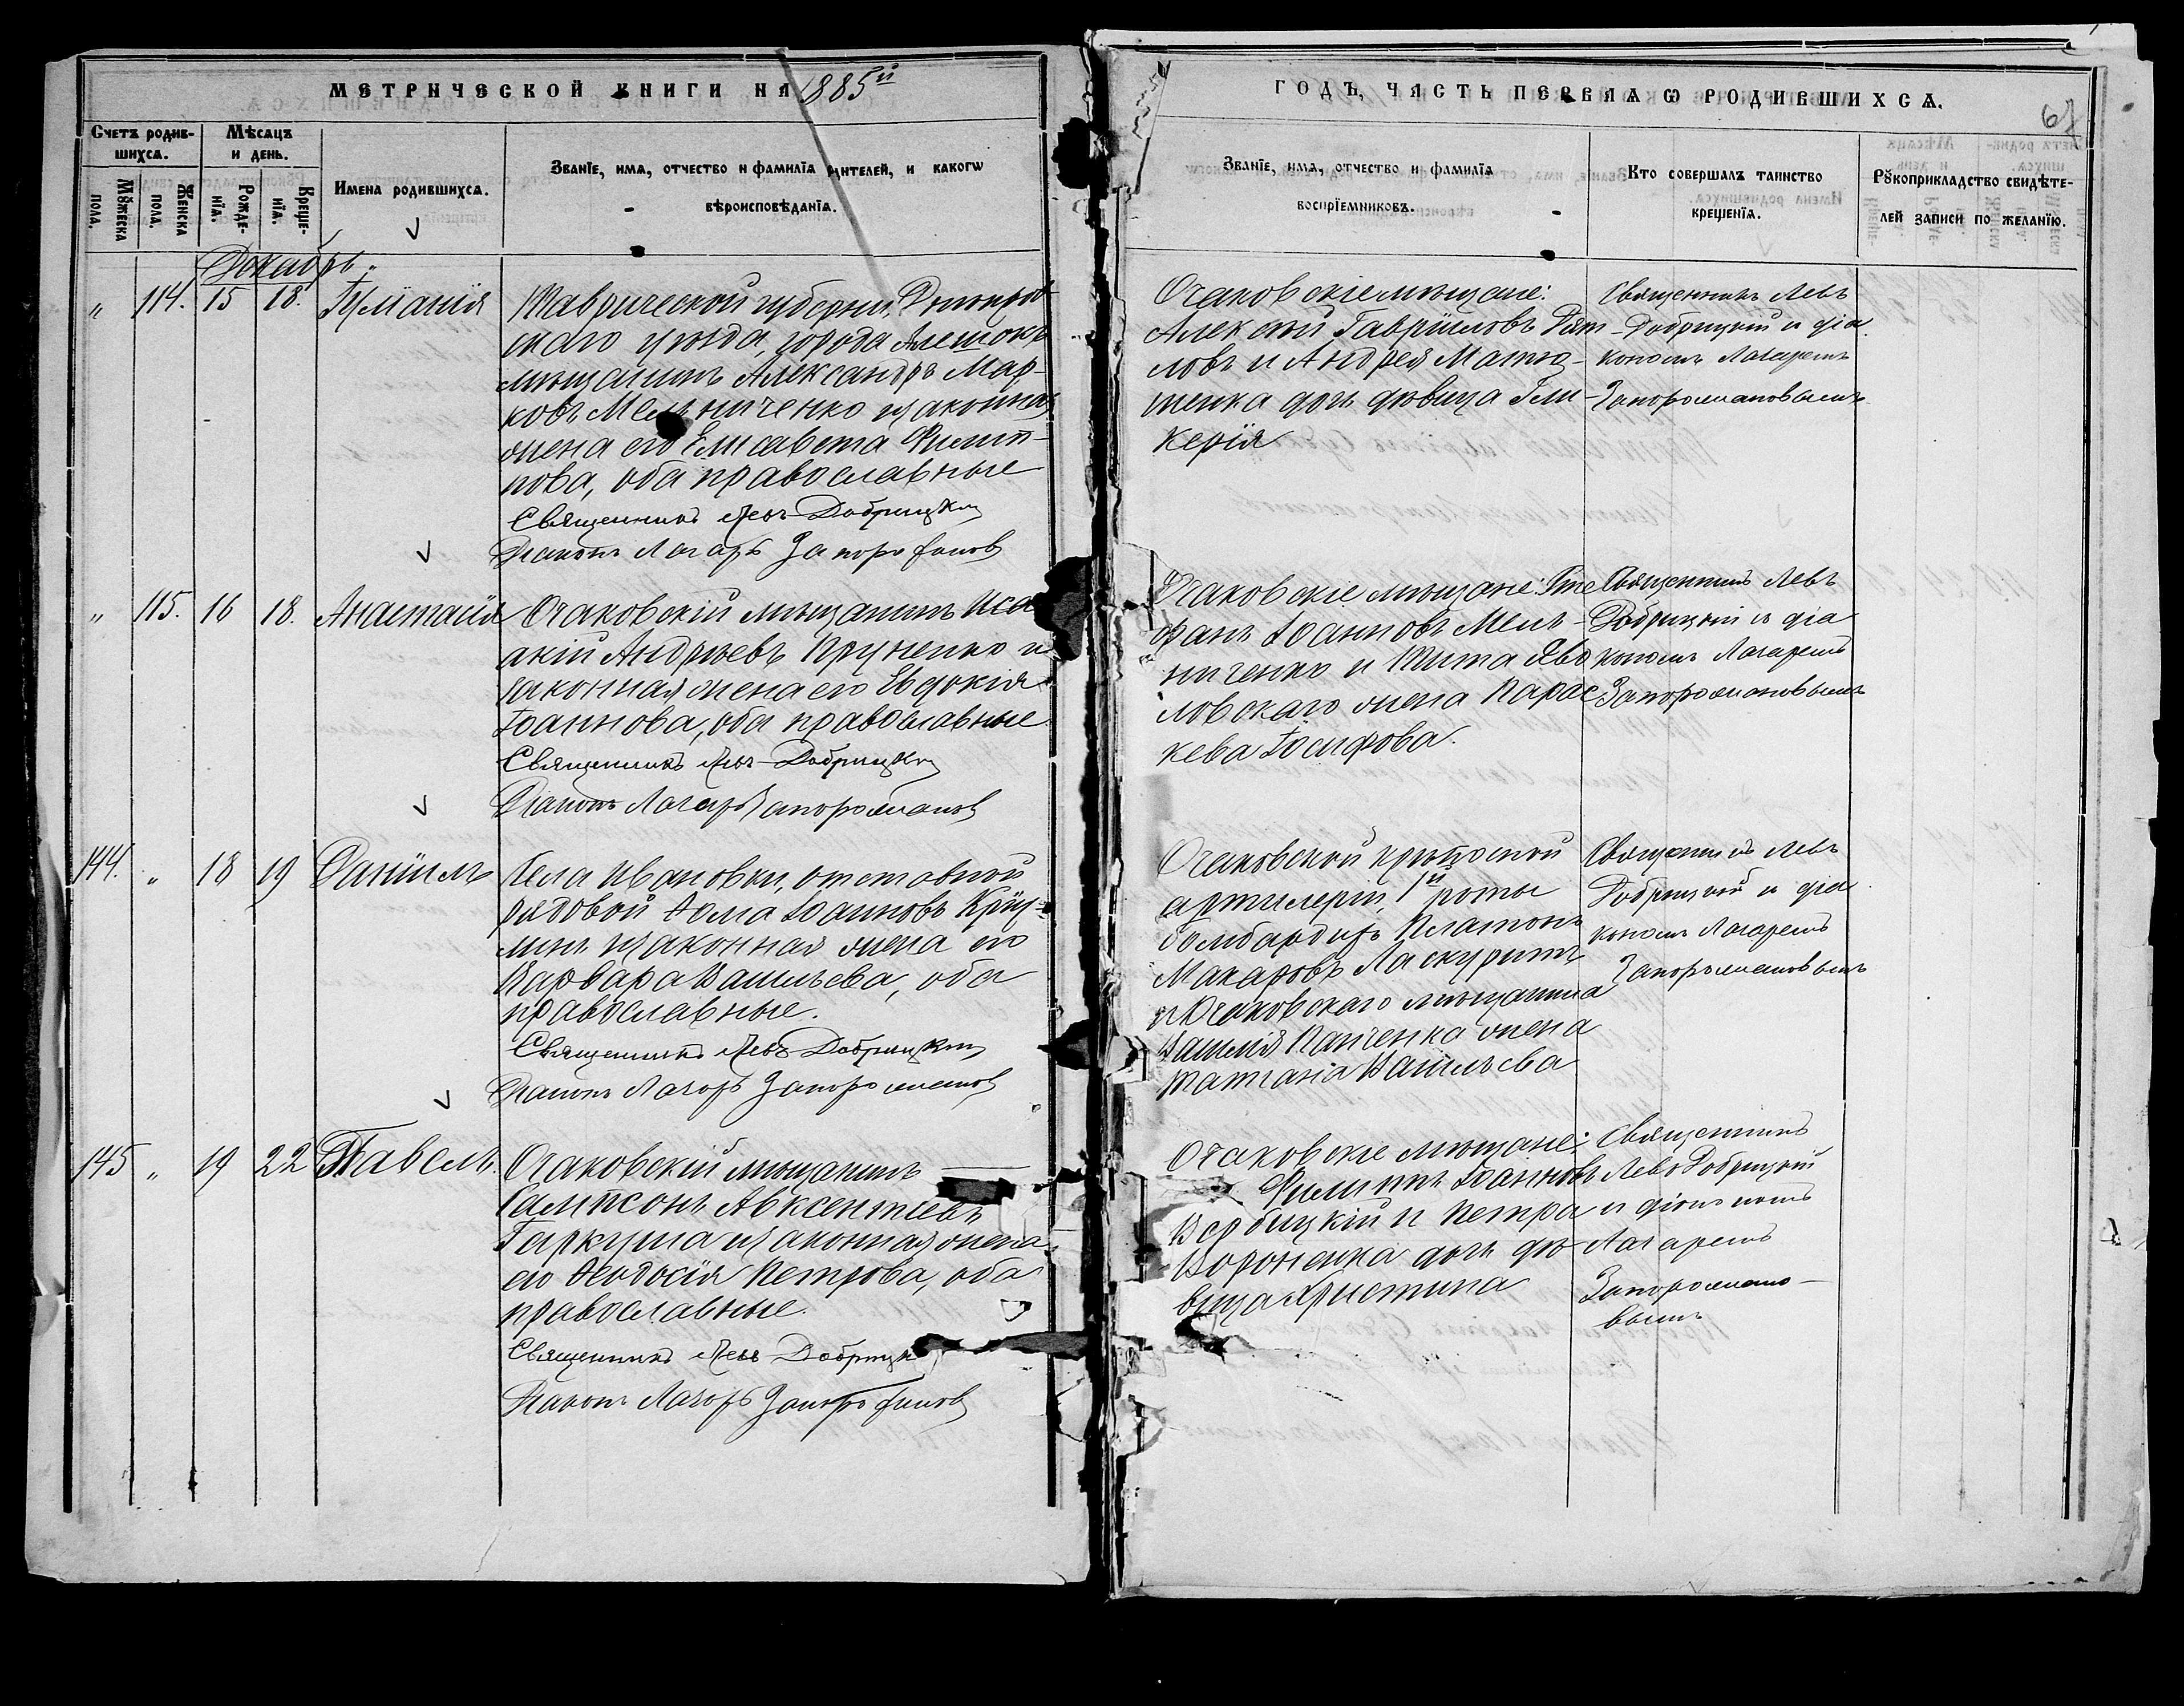 МЕТРИЧЕСКОЙ КНИГИ НА 1885й
ГОДЪ, ЧАСТЬ ПЕРВАЯ Ѡ РОДИВШИХСѦ.
68
Счетъ родившихсѧ.
Мѣсѧцъ и день.
Мꙋжеска пола.
Женска пола.
Рожденїѧ.
Крещенїѧ.
Имена родившихсѧ.
Званїе, имѧ, отчество и фамилїѧ родителей, и какогѡ
вѣроисповѣданїѧ.
Званїе, имѧ, отчество и фамилїѧ
воспрїемниковъ.
Кто совершалъ таинство
крещенїѧ.
Рꙋкоприкладство свидѣте-
лей записи по желанїю.
Декабрь.
„ 114. 15 18. Іуліанія
Таврической губерніи, Днѣпров-
скаго уѣзда, города Алешокъ
мѣщанинъ Александръ Мар-
ковъ Мельниченко и законная
жена его Елисавета Филип-
пова, оба православные
Священникъ Левъ Добрицкій
Діаконъ Лазарь Запорожановъ
Очаковскіе мѣщане:
Алексій Гавріиловъ
ловъ и Андрея Матю-
шенка дочь дѣвица Гли-
керія
Священникъ Левъ
Добрицкій и діа
кономъ Лазаремъ
Запорожановымъ
„ 115. 16 18. Анастасія
Очаковскій мѣщанинъ Иса
акій Андреевъ Пруненко и
законная жена его Евдокія
Іоаннова, оба православные
Священникъ Левъ Добрицкій
Діаконъ Лазарь Запорожановъ
Очаковскіе мѣщане: Сте
фанъ Іоанновъ Мель-
ниченко и Тита Яво
ловскаго жена Парас
кева Іосифова.
Священникъ Левъ
Добрицкій и діа
кономъ Лазаремъ
Запорожановымъ
144. „ 18 19 Даніилъ
Села Ивановки, отставной
рядовой Ѳома Іоанновъ
законная жена его
Варвара Васильева, оба
православные.
Священникъ Левъ Добрицкій
Діаконъ Лазарь Запорожановъ
Очаковской крѣпостной
артилеріи, 1й роты
бомбардиръ Платонъ
Макаровъ Ласкуринъ
и Очаковскаго мѣщанина
Василія Панченка жена
Татіана Васильева
Священникъ Левъ
Добрицкій и діа
кономъ Лазаремъ
Запорожановымъ
145 „ 19 22 Павелъ.
Очаковскій мѣщанинъ
Сампсонъ Авксентіевъ
Гаркуша и законная жена
его Ѳеодосія Петрова, оба
православные.
Священникъ Левъ Добрицкій
Діаконъ Лазарь Запорожановъ
Очаковскіе мѣщане:
Филиппъ Іоанновъ
Вербицкій и Петра
Вороненка дочь дѣ-
вица Христина
Священникъ
Левъ Добрицкій
и діакономъ
Лазаремъ
Запорожано-
вымъ